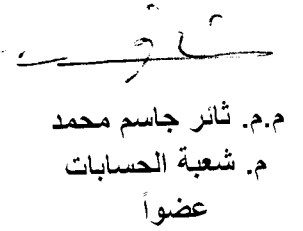 م.م. ثائر جاسم محمد
م. شعبة الحسابات
عضواً